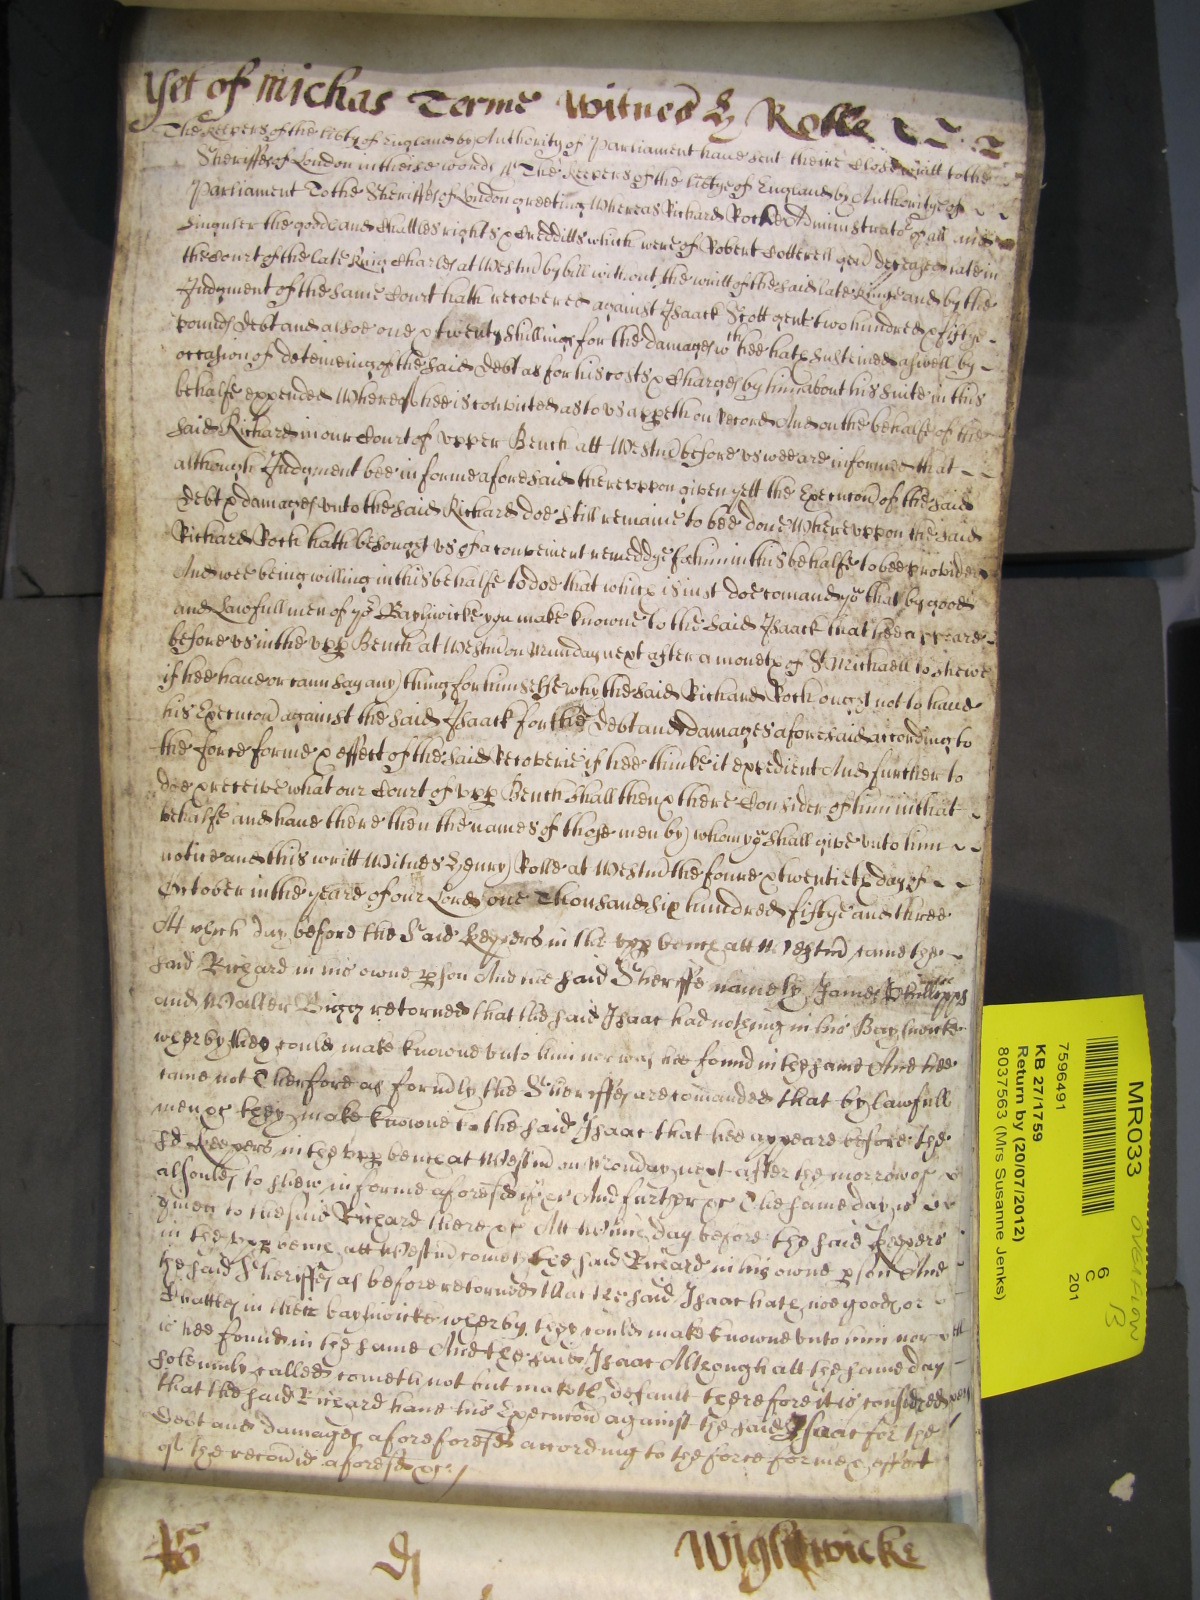 Yet of Michas Terme Witnes by Rolle
The Keepers of the libty of England by Authority of Parliament have sent theire Close writt to the
Sheriffes of London in theise words The Keepers of the libtye of England by Authoritye of
Parliament To the Sheriffes of London greeting Whereas Richard Rock Administrator of all and
singuler the goods and Chattles rights & Creditts which were of Robert Cotterell gent deceased late in
the Court of the late King Charles at Westm by bill without the writt of the said late Kinge and by the
Judgment of the same Court hath recovered against Isaack Scott gent two hundred & fiftye
pounds debt and alsoe one & twenty shillings for the damages wth hee hath susteined aswell by
occasion of deteineing of the said debt as for his costs & Charges by him about his suite in this
behalfe expended Whereof hee is convicted as to us appeth on record And on the behalfe of the
said Richard in our Court of upper Bench att Westm before us wee are informed that
although Judgment bee in forme aforesaid thereuppon given yett the Execucon of the said
debt & damages unto the said Richard doe still remaine to bee done Whereuppon the said
Richard Rock hath besought us of a convenient remeddye for him in this behalfe to bee provided
And wee being willing in this behalfe to doe that which is iust doe comand you that by good
and lawfull men of yor Baylywicke you make knowne to the said Isaack that hee appeare
before us in the upp Bench at Westm on Munday next after a moneth of St Michaell to shewe
if hee have or cann say any thing for himselfe why the said Richard Rock ought not to have
his Execucon against the said Isaack for the debt and damages aforesaid according to
the force forme & effect of the said Recoverie if hee thinke it expedient And further to
doe & receive what our Court of upp Bench shall then & there Consider of him in that
behalfe and have there then the names of those men by whom yo shall give unto him
notice and this writt Witnes Henry Rolle at Westm the foure & twentieth day of
October in the yeare of our Lord one Thousand six hundred fiftye and three
At which day before the said Keepers in the upp bench att Westm came the
said Richard in his owne pson And the said Sheriffs namely James Phillipps
and Walter Bigg retorned that the said Isaac had nothing in his Baylywicke
wherby they could make knowne unto him nor was hee found in the same And hee
came not Therfore as formly the Sheriffes are comanded that by lawfull
men &c they make knowne to the said Isaac that hee appeare before the
sd Keepers in the upp bench at Westm on Monday next after the morrow of
all soules to shew in forme aforesd if &c And further &c The same day is
given to the said Richard there &c Att which day before the said Keepers
in the upp bench att Westm comes the said Richard in his owne pson And
the said Sheriffes as before retorned that the said Isaac hath noe goods or
Chattles in their baylywicke wherby they could make knowne unto him nor
is hee found in the same And the said Isaac Although att the same day
solemnly called cometh not but maketh default therefore it is considred
that the said Richard have his Execucon against the said Isaac for the
debt and damages aforesd according to the force forme & effect
of the recovie aforesd &c
Wightwicke
MR033
OVERFLOW
B
6
C
201
7596491
KB 27/1759
Return by (20/07/2012)
8037563 (Mrs Susanne Jenks)